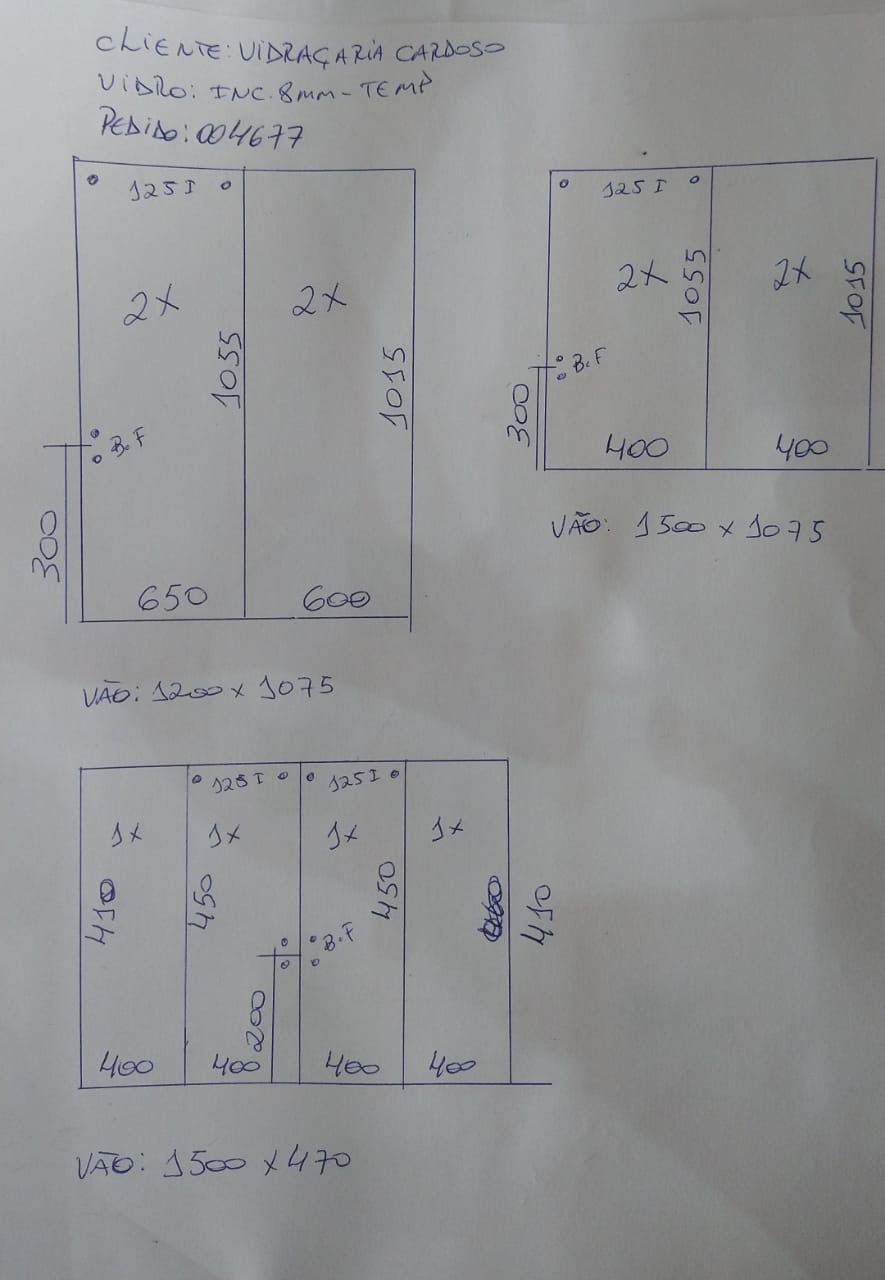 CLIENTE: VIDRAÇARIA CARDOSO
VIDRO: INC. 8MM - TEMP
PEDIDO: 004677
125I
2X
2X
1055
1015
B.F
300
650
600
VÃO: 1200 X 1075
125I
2X
2X
1055
1015
B.F
300
400
400
VÃO: 1500 X 1075
125I
125I
1X
1X
1X
1X
410
450
450
410
B.F
200
400
400
400
400
VÃO: 1500 X 470